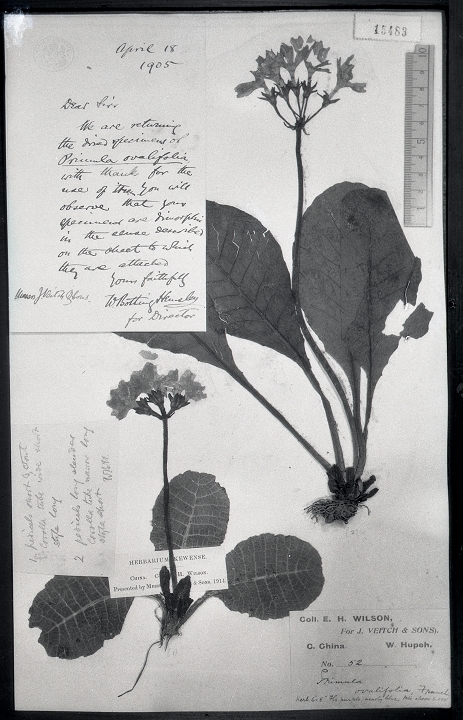 15483
April 18
1905
Dear Sirs
We are returning
the dried specimens of
Primula ovalifolia
with thanks for the
use of them. You will
observe that your
specimens are dimorphic
in the sense described
on the sheet to which
they are attached
Yours faithfully
W Botting Hemsley
for Director
Messrs J Veitch & Sons.
1 pedicels short & stout
corolla tube wide short
style long
2 pedicels long slender
corolla tube narrow long
style short
HERBARIUM KEWENSE.
CHINA. WILSON.
Presented by & SONS, 1914.
Coll. E. H. WILSON,
For J. VEITCH & SONS).
C. China. W. Hupeh.
No. 52
Primula
ovalifolia, Franch